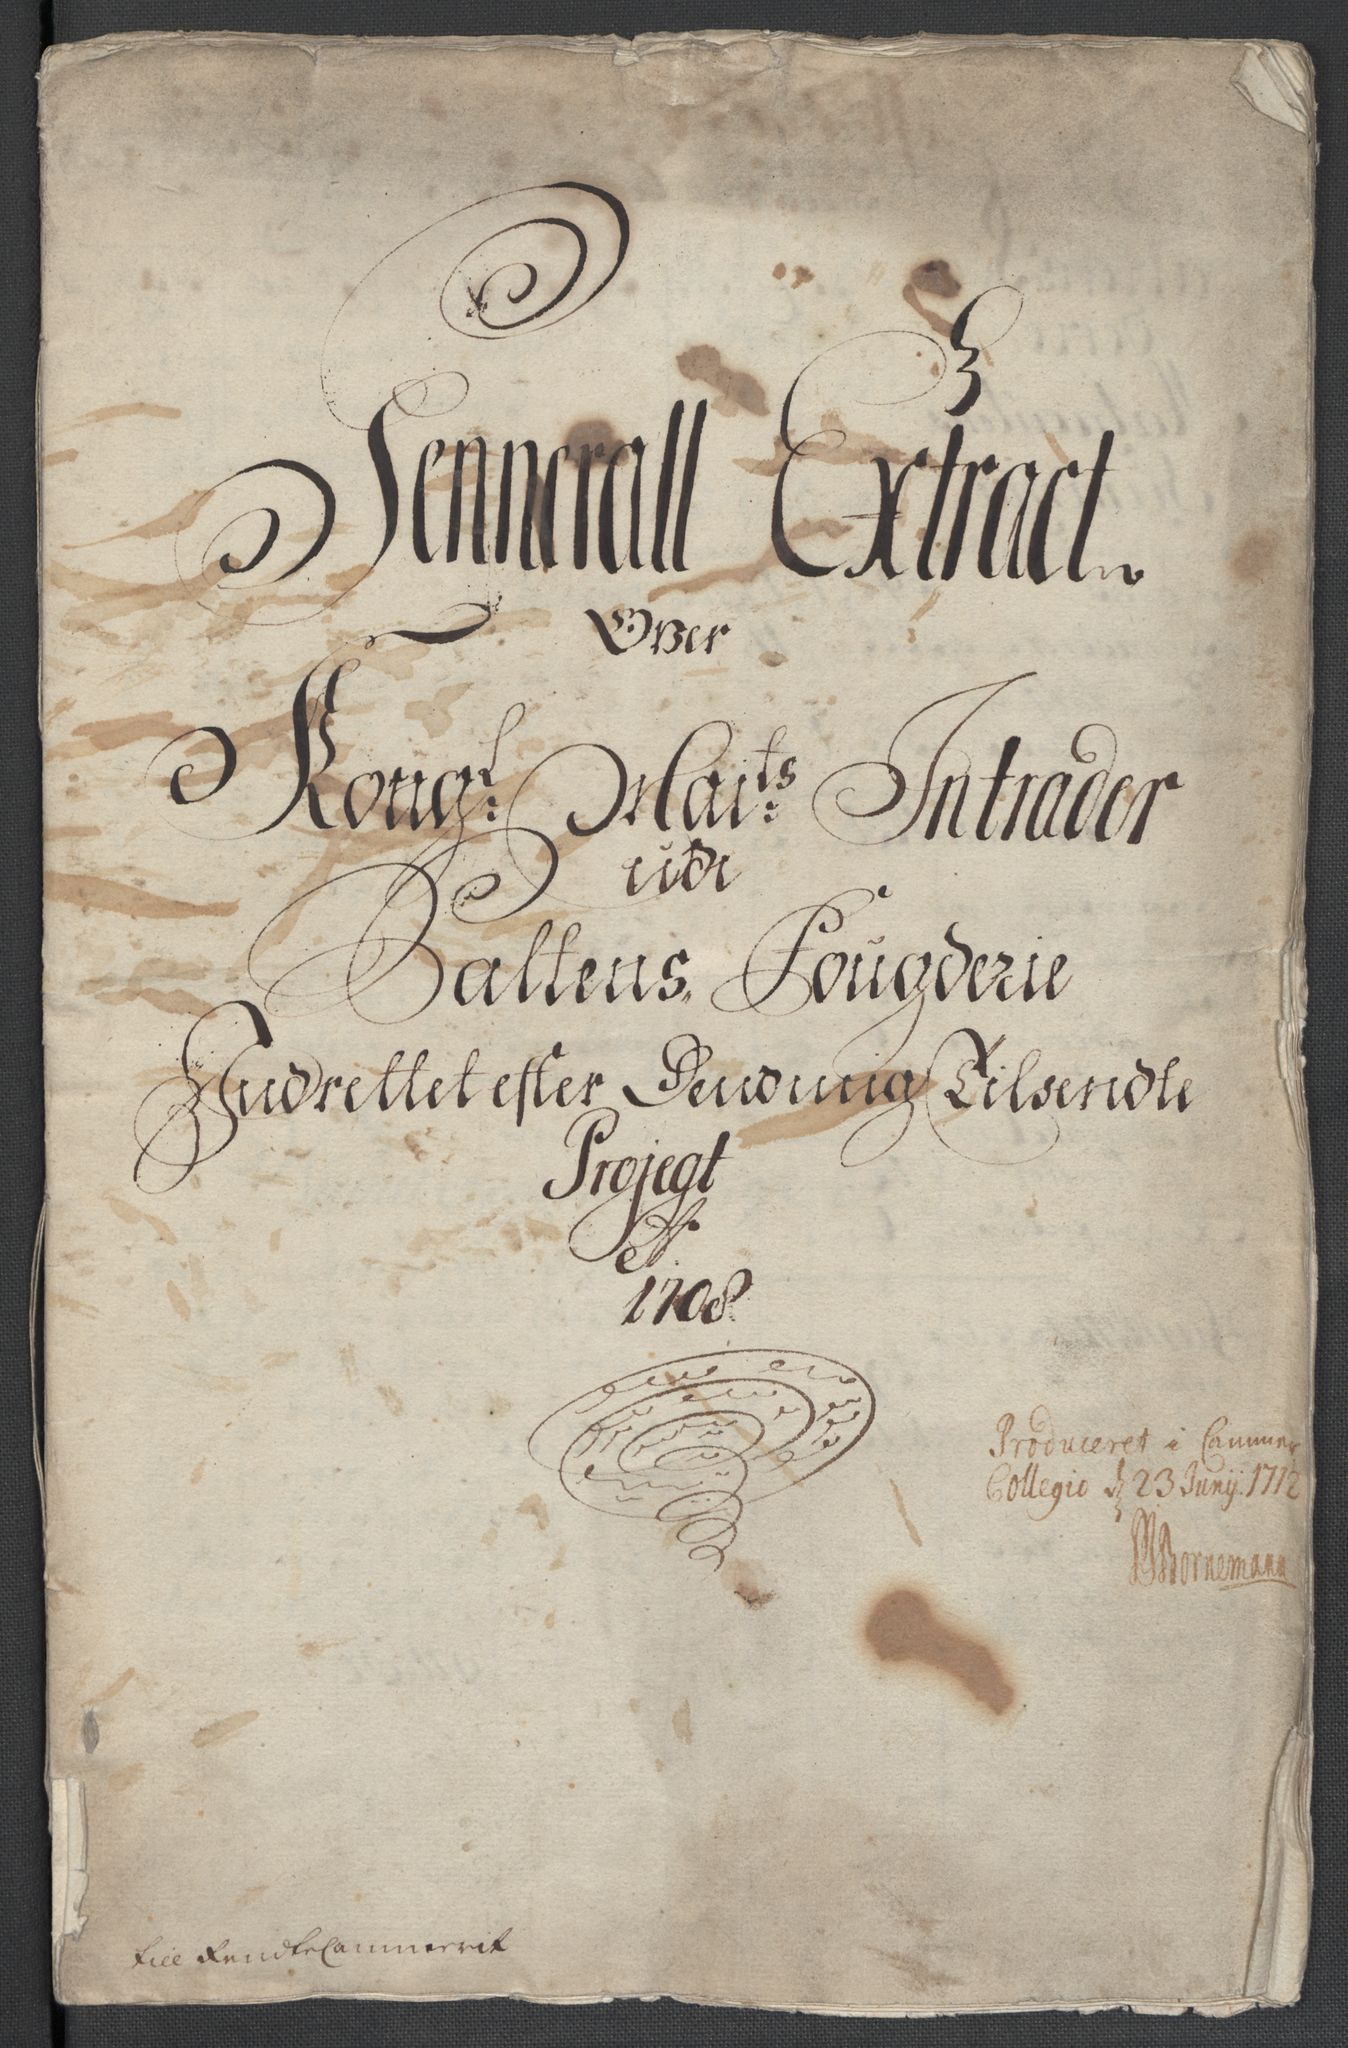 Gennerall Extract
Over
Kongl: Maits: Intrader
udi
Saltens Fougderie
Indrettet efter Denonnig Tilsendte
Projegt
A°
1708
Produceret i Cammer
Collegio d 23 Junij 1712
Bornemann
till RendteCammerrit